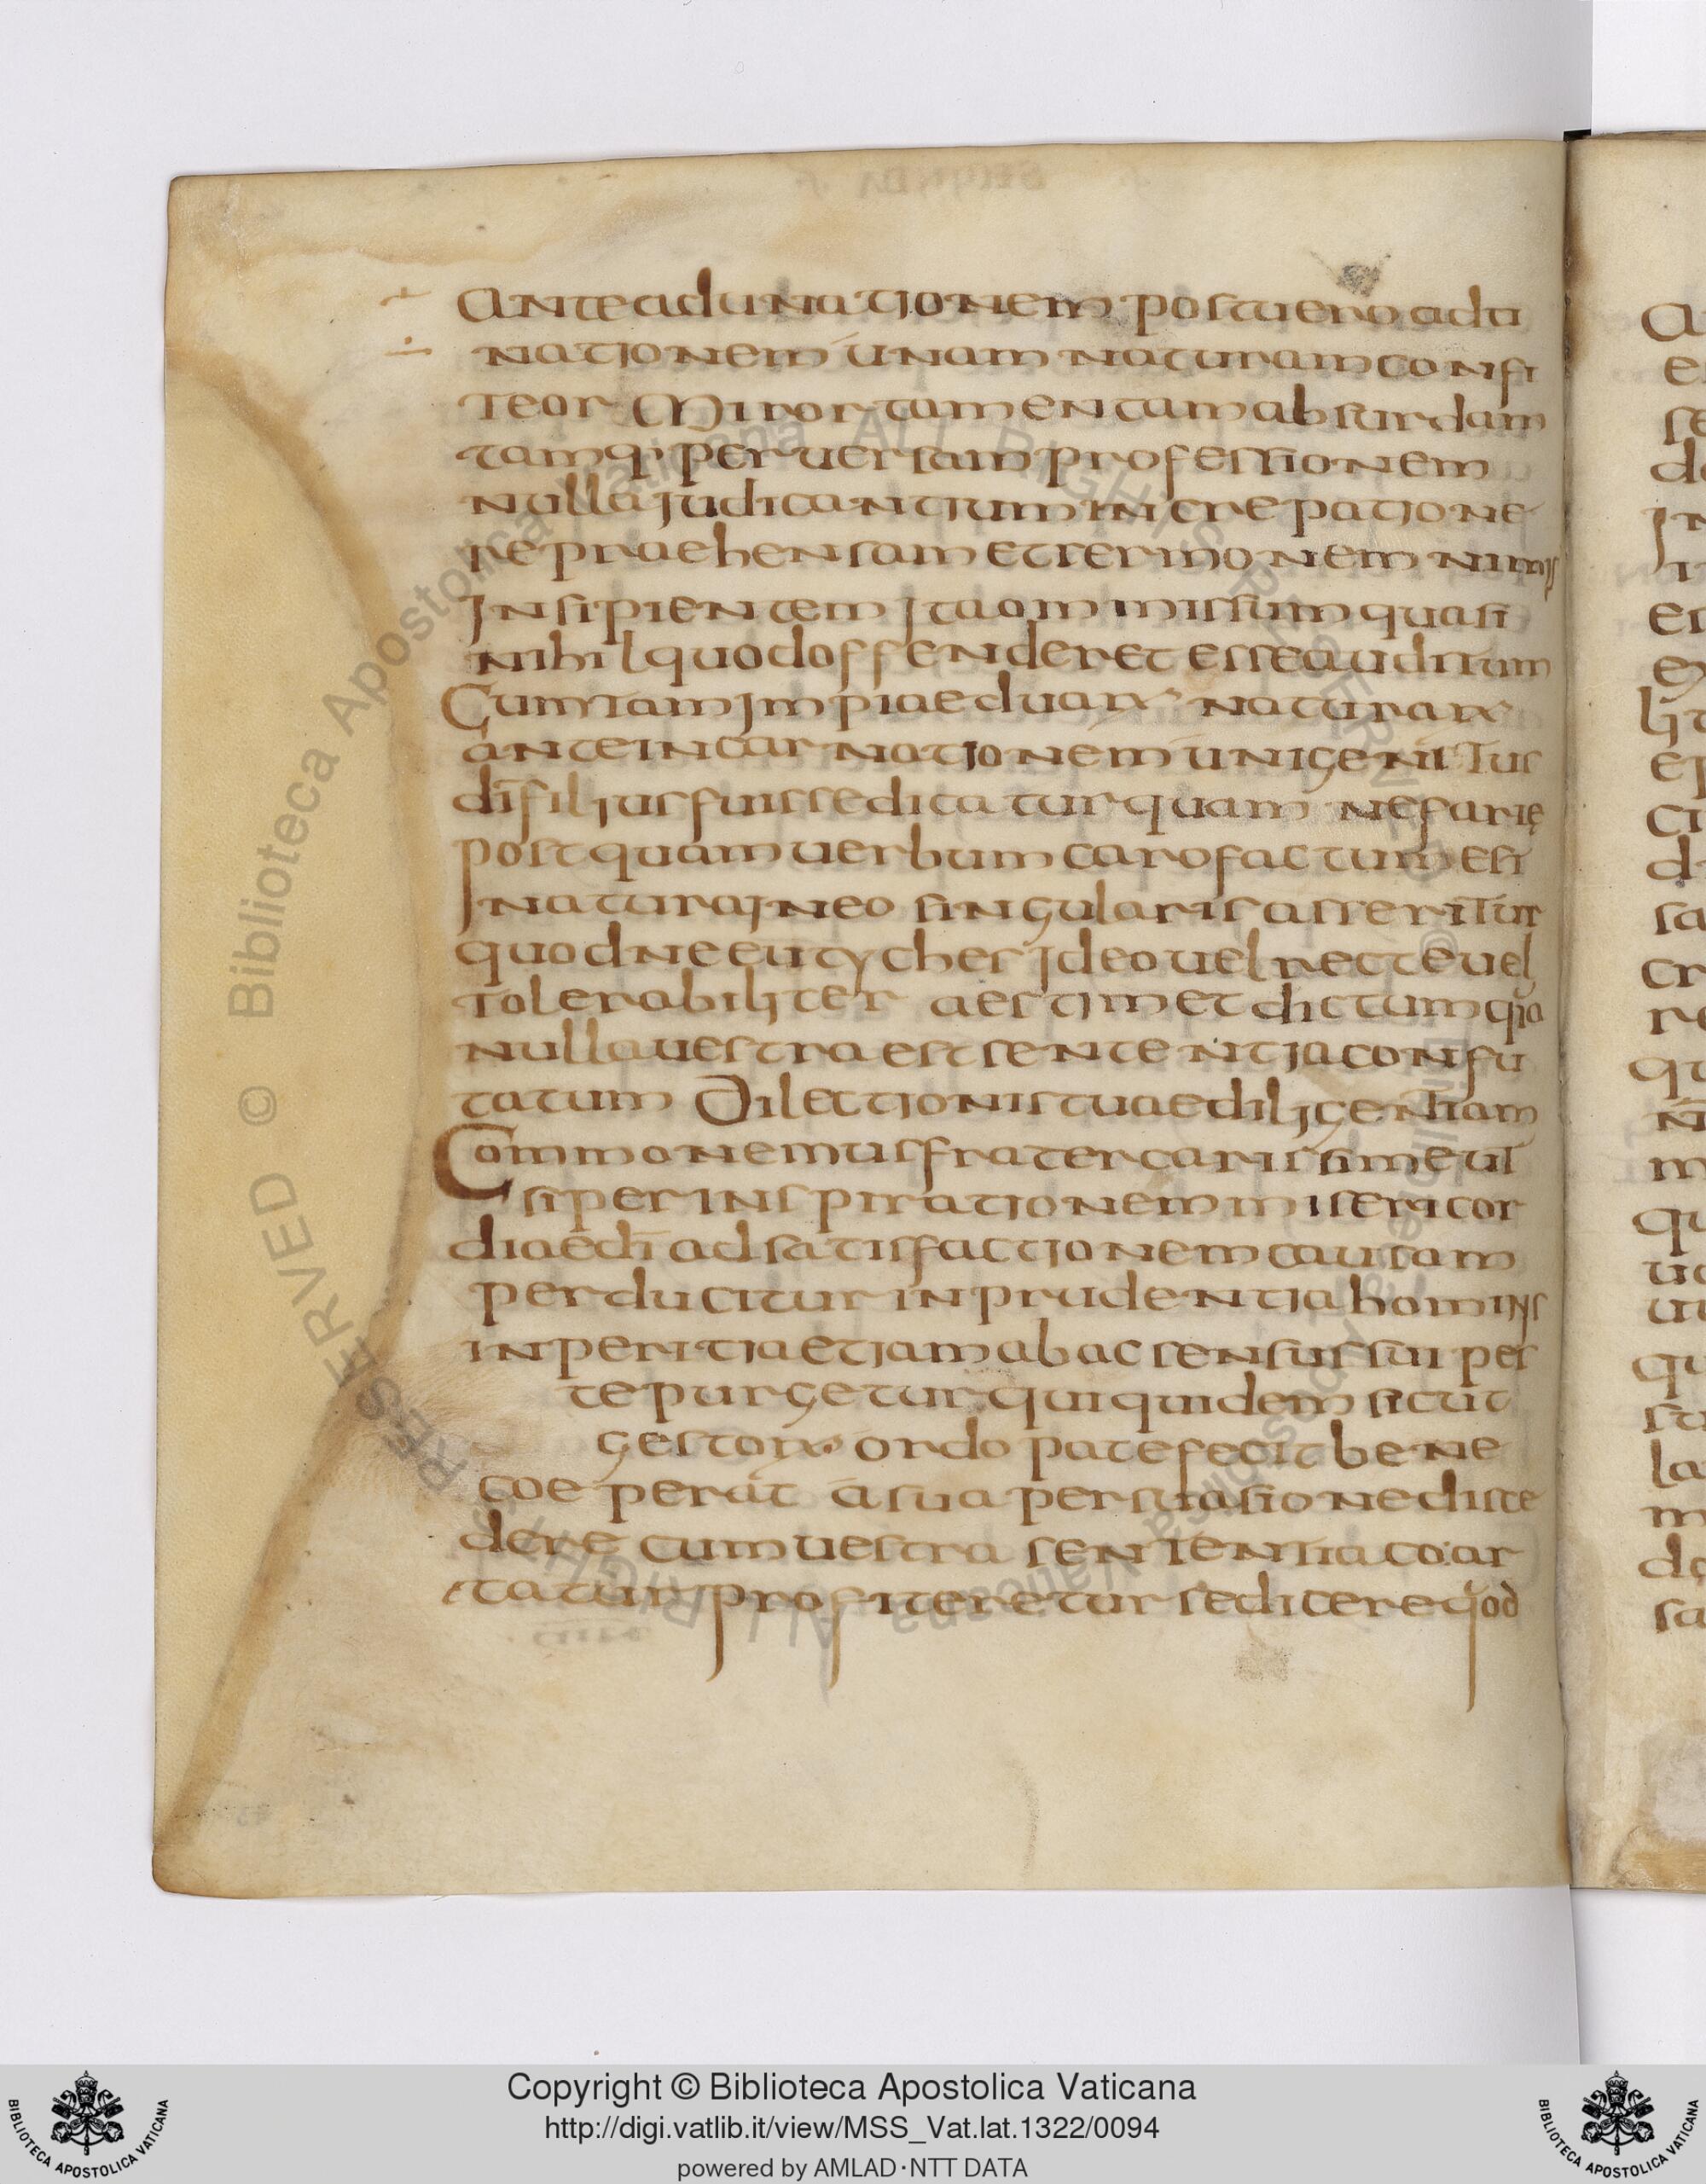 anteadunationem postuero adu
nationem unam naturam confi
teor Miror tamen tam absurdam
tamq· peruersam professionem
nulla judicantium increpatione
repraehensam et sermonem nimis
Insipientem Ita ommissum quasi
nihil quod offenderet esse auditum
Cum tam Impiae duarꝝ naturarꝝ
ante incarnationem unigenitus
dī filjus fuisse dicatur quam nefarię
postquam uerbum caro factum est
Natura In eo singularis asseritur
quod ne eutyches Ideo uel recte uel
tolerabiliter aestimet dictum q̇a
nulla uestra est sentenntja confu
tatum Dilectionis tuae diljgentiam
Commonemus frater carissime ut
si per inspirationem misericor
diae dī ad satisfactionem causam
perducitur inprudentia hominis
inperitia etjam ab ac sensus sui pes
te purgetur qui quidem sicut
gestorꝝ ordo patefecit bene
coeperat a sua persuasione disce
dere cum uestra sententia coar
tatum profiteretur se dicere quod
Copyright © Biblioteca Apostolica Vaticana
http://digi.vatlib.it/view/MSS_Vat.lat.1322/0094
powered by AMLAD·NTT DATA